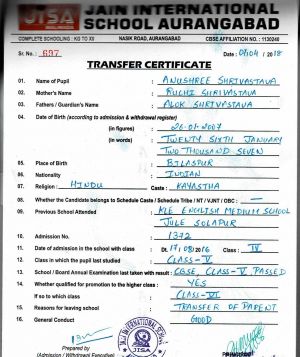 JISA
JAIN INTERNATIONAL
SCHOOL AURANGABAD
COMPLETE SCHOOLING : KG TO XII NASIK ROAD, AURANGABAD CBSE AFFILIATION NO. : 1130240
Sr. No.: 697 Date : 04/04 / 2018
TRANSFER CERTIFICATE
01. Name of Pupil : ANUSHREE SHRIVASTAVA
02. Mother's Name : RUCHI SHRIVASTAVA
03. Fathers / Guardian's Name : ALOK SHRIVASTAVA
04. Date of Birth (according to admission & withdrawal register)
(in figures) : 26-01-2007
(in words) : TWENTY SIXTH JANUARY
TWO THOUSAND SEVEN
05. Place of Birth : BILASPUR
06. Nationality : INDIAN
07. Religion : HINDU Caste : KAYASTHA
08. Whether the Candidate belongs to Schedule Caste / Schedule Tribe / NT / VJNT / OBC : —
09. Previous School Attended : KLE ENGLISH MEDIUM SCHOOL
JULE SOLAPUR
10. Admission No. : 1372
11. Date of admission in the school with class : Dt. 17/08/2016 Class : IV
12. Class in which the pupil last studied : CLASS-V
13. School / Board Annual Examination taken with result : CBSE, CLASS-V, PASSED
14. Whether qualified for promotion to the higher class : YES
If so to which class : CLASS-VI
15. Reasons for leaving school : TRANSFER OF PARENT
16. General Conduct : GOOD
JAIN INTERNATIONAL SCHOOL
JISA
Prepared by
(Admission / Withdrawal Function)